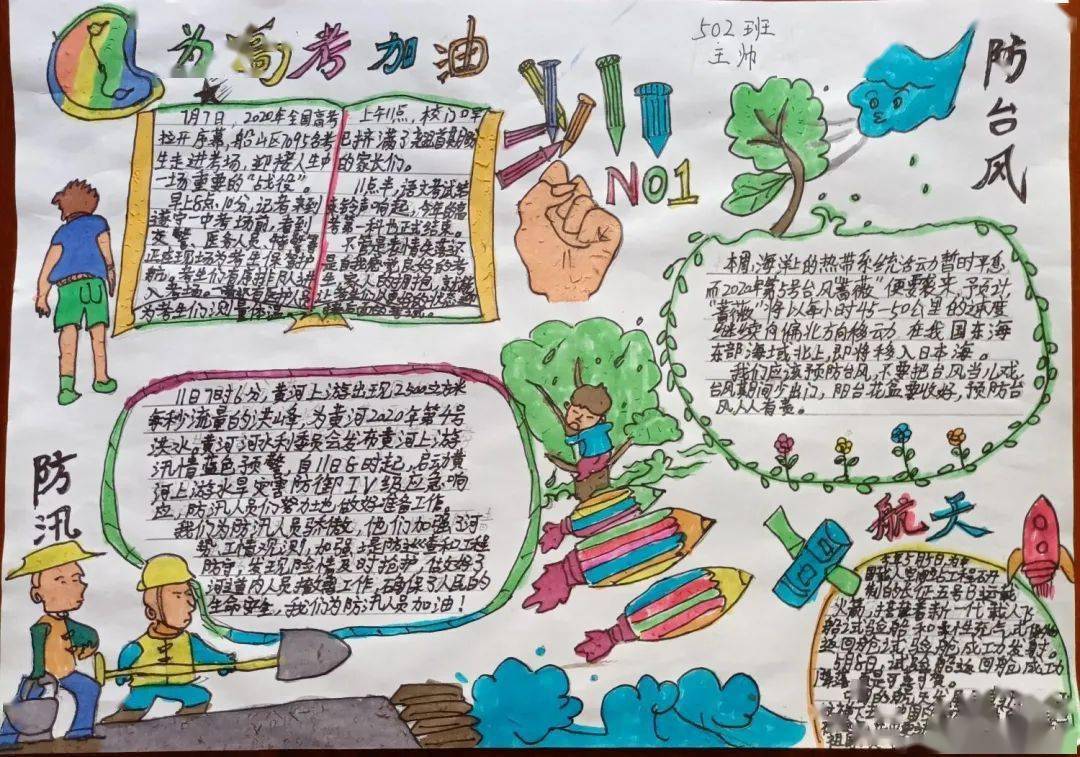 为高考加油
502班
王帅
防台风
7月7日，2020年全国高考
拉开序幕，船山区7095名考
生走进考场，迎接人生中
一场重要的“战役”。
早上8点10分，记者来到
遂宁一中考场前，看到
交警、医务人员、
正在现场为考生保驾护
航。考生们有序排队进
入考场。
为考生们测量体温
上午11点，校门口早
已挤满了翘首期盼
的家长们。
11点半，语文考试结
束铃声响起，今年的高
考第一科也正式结束。
NO1
本周，海洋上的热带系统活动暂时平息
而2020年第5号台风“蔷薇”便要袭来，预计
“蔷薇”将以每小时45-50公里的速度
继续向偏北方向移动，在我国东海
东部海域北上，即将移入日本海。
我们应该预防台风，不要把台风当儿戏，
台风期间少出门，阳台花盆要收好，预防台
风人人有责。
防汛
11日7时36分，黄河上游出现2500立方米
每秒流量的洪峰，为黄河2020年第4号
洪水，黄河河水利委员会发布黄河上游
汛情蓝色预警，自11日8时起，启动黄
河上游水旱灾害防御IV级应急响
应，防汛人员们努力地做好准备工作。
我们为防汛人员骄傲，他们加强了河
势、工情观测，加强土堤防巡查和工程
防守，发现险情及时抢护，做好了
河道内人员撤离工作，确保了人民的
生命安全，我们为防汛人员加油！
航天
本年5月5日，为我
国载人空间站工程研
制的长征五号B运载
火箭，搭载着新一代载人飞
船试验船和柔性充气式货物
返回舱试验舱成功发射。
5月8日，试验船返回舱成功
着陆，真是可喜可贺。